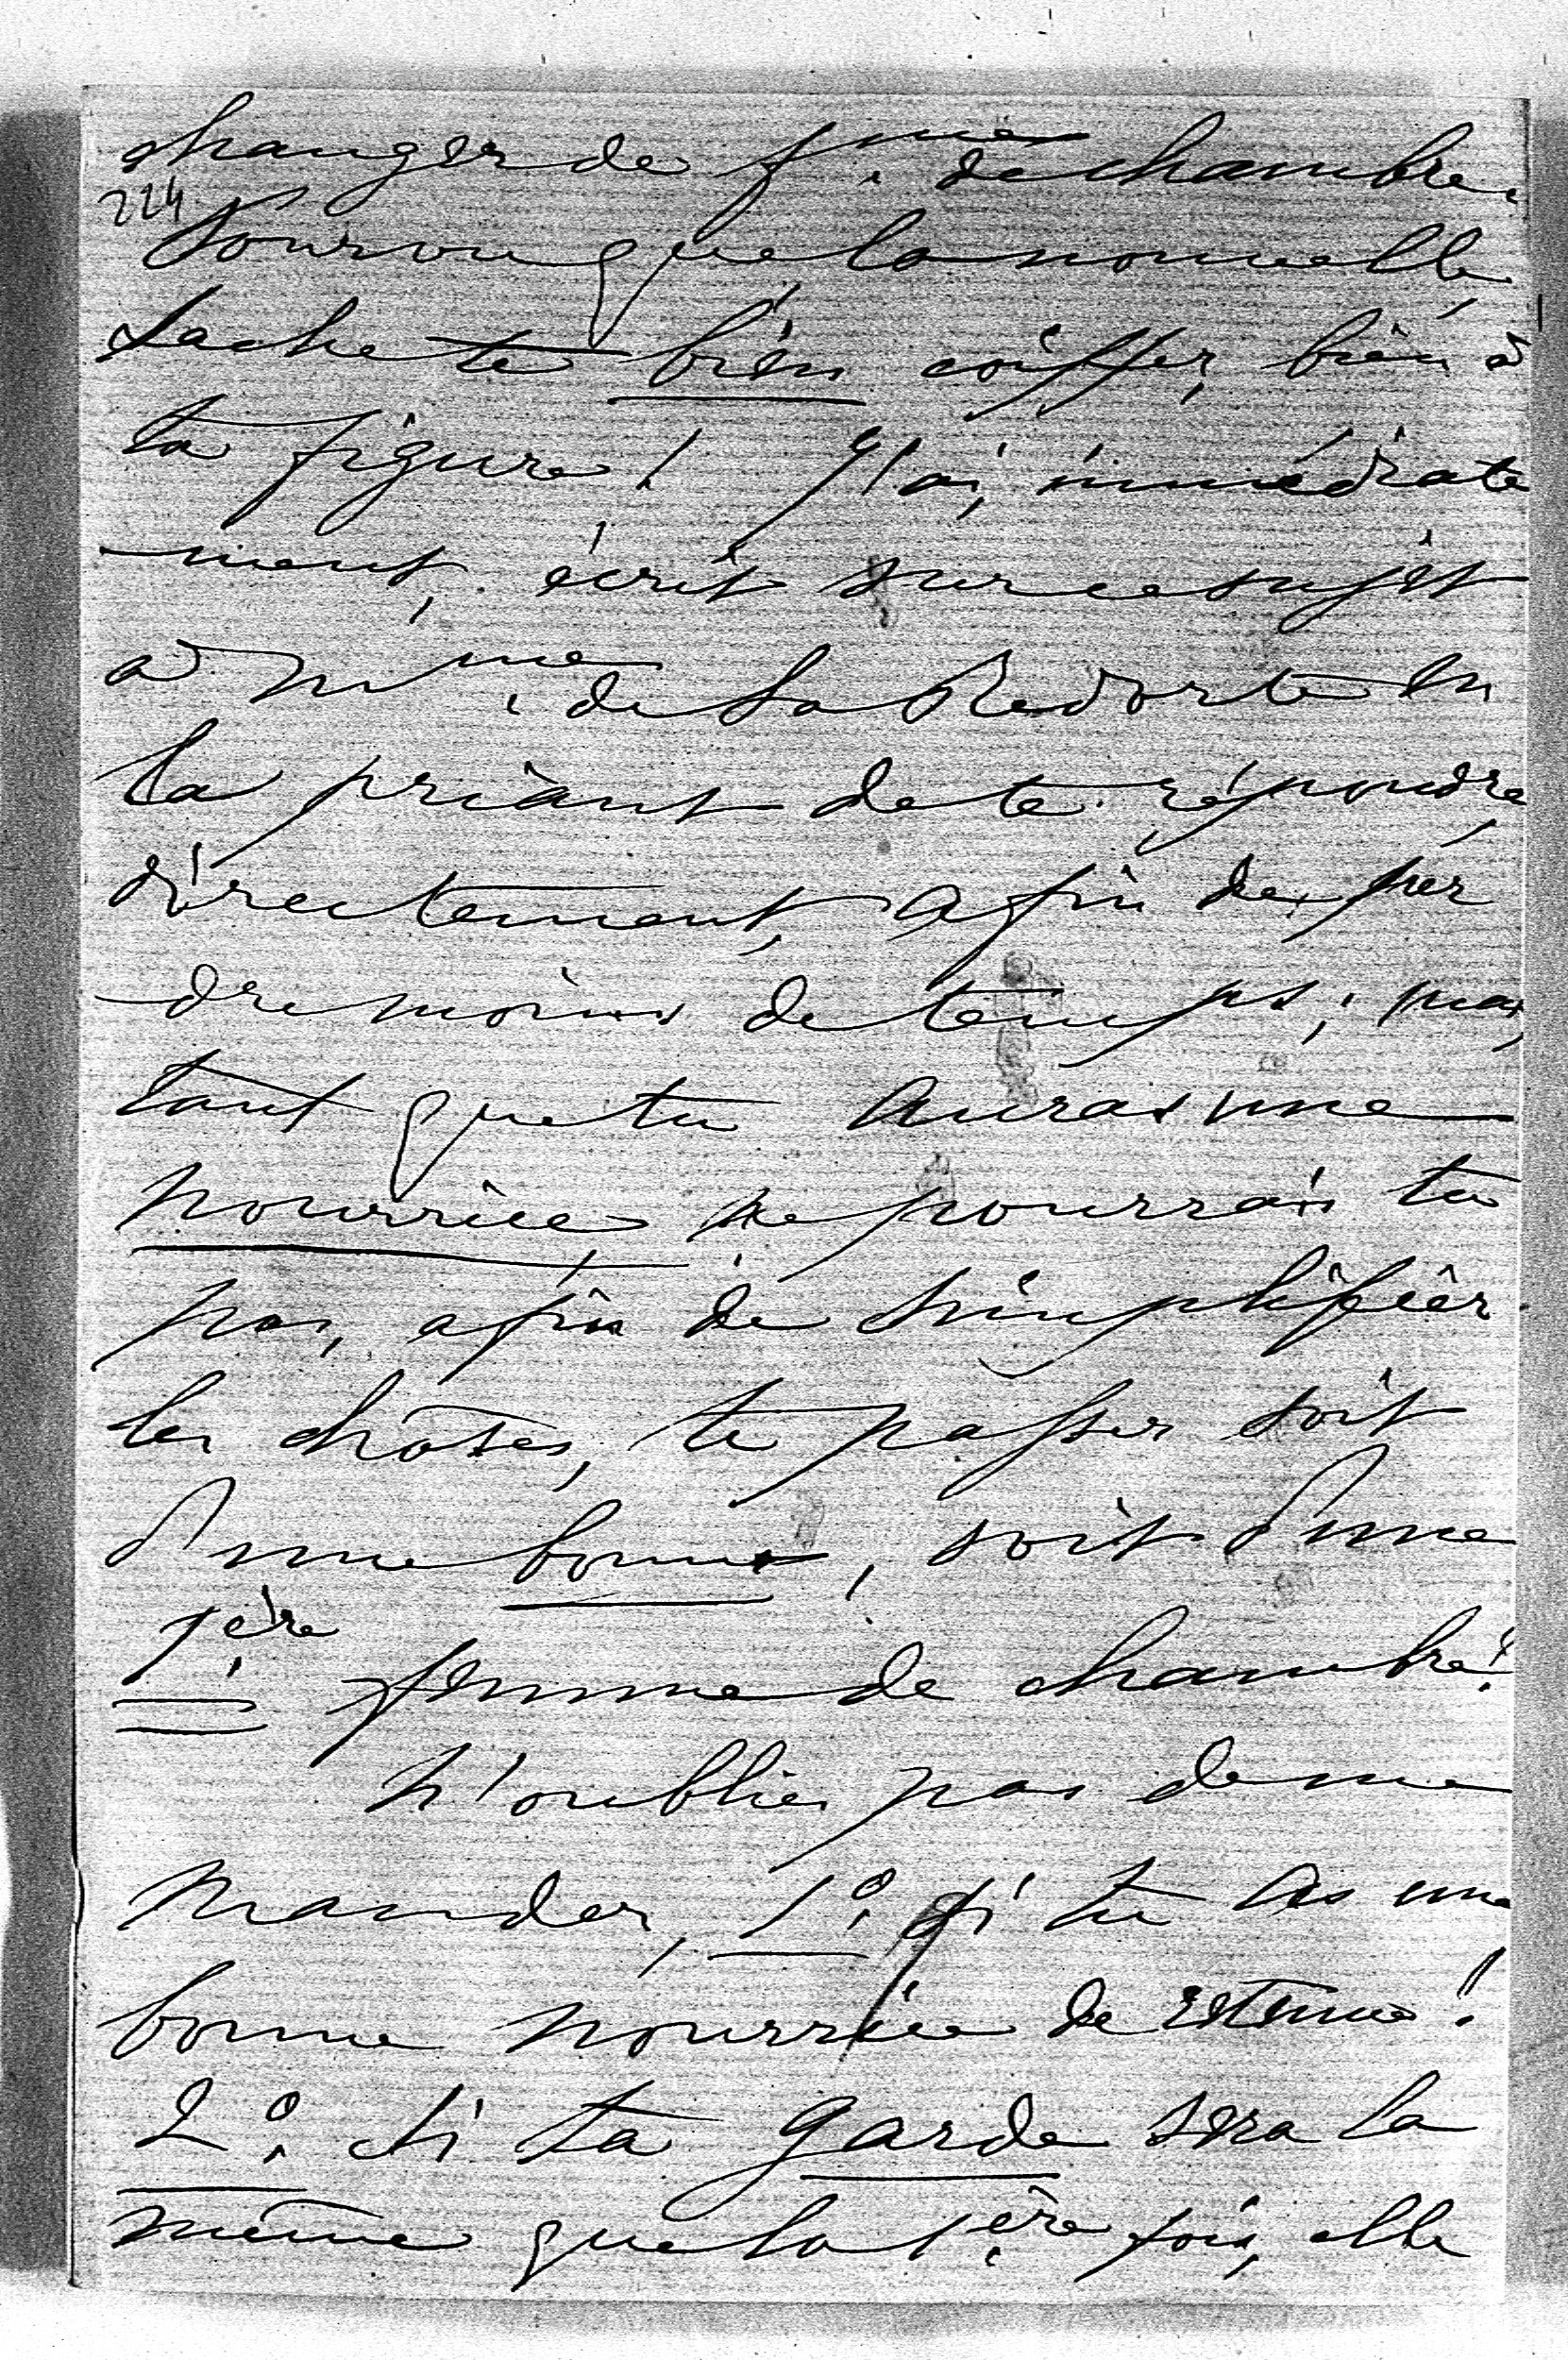 changer de f.me de chambre.
224
Pourvu que la nouvelle
sache te bien coiffer, bien à
ta figure! J'ai, immédiate
-ment, écrit sur ce sujet
à M.me de La Redorte en
la priant de te répondre
directement, afin de per
-dre moins de temps; mais,
tant que tu auras une
nourrice, ne pourrais tu
pas, afin de simplifier
les choses, te passer soit
d'une bonne, soit d'une
1.ère femme de chambre?
N'oublies pas de me
mander, 1.º si tu as une
bonne nourrice de retenue!
2.º si ta garde sera la
même que la 1.ère fois, elle